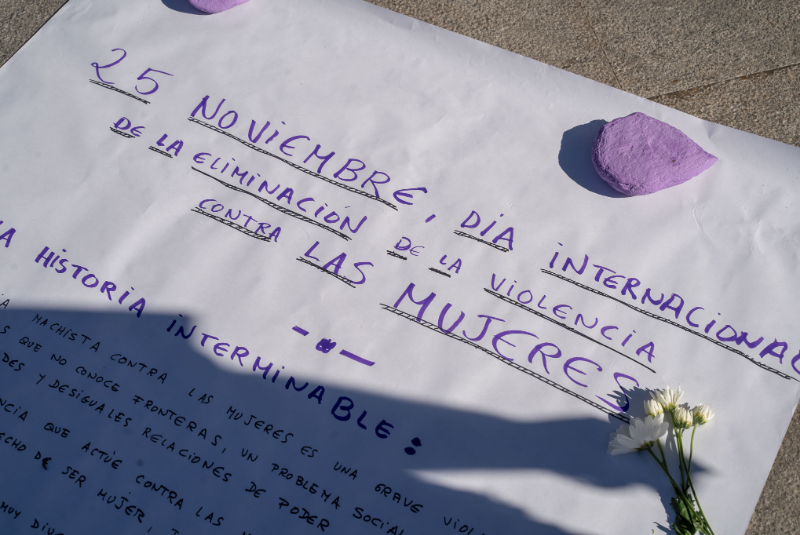 25 NOVIEMBRE, DÍA INTERNACIONAL
DE LA ELIMINACIÓN DE LA VIOLENCIA
CONTRA LAS MUJERES
HISTORIA INTERMINABLE:
MACHISTA CONTRA LAS MUJERES ES UNA GRAVE
QUE NO CONOCE FRONTERAS, UN PROBLEMA SOCIAL
Y DESIGUALES RELACIONES DE PODER
QUE ACTÚE CONTRA LAS
DE SER MUJER,
MUY